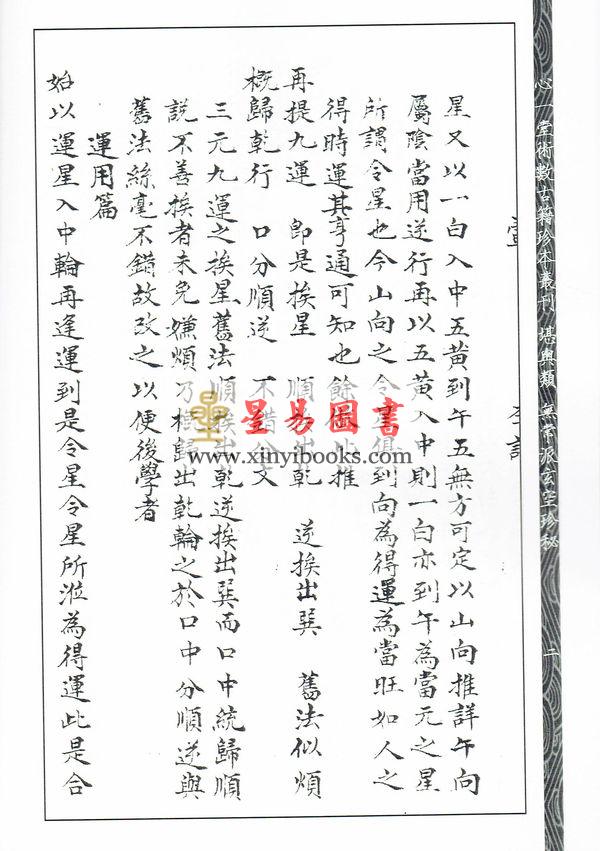 心一堂術數古籍珍本叢刊 堪輿類 無常派玄空珍秘
二
星又以一白入中五黃到午五無方可定以山向推詳午向
屬陰當用逆行再以五黃入中則一白亦到午為當元之星
所謂令星也今山向之令星俱到向為得運為當旺如人之
得時運其亨通可知也餘此推
再提九運 即是挨星 順挨出乾 逆挨出巽 舊法似煩
概歸乾行 口分順逆 不錯分文
三元九運之挨星舊法順挨出乾逆挨出巽而口中統歸順
説不善挨者未免嫌煩乃概歸出乾輪之於口中分順逆與
舊法絲毫不錯故改之以便後學者
運用篇
始以運星入中輪再逢運到是令星令星所涖為得運此是合
星易圖書
www.xinyibooks.com